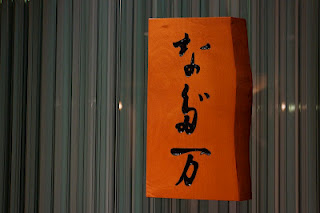 なだ万